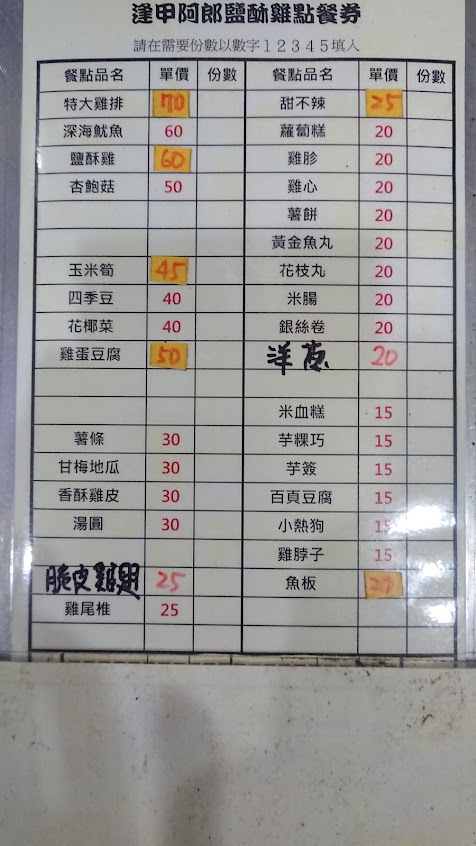 逢甲阿郎鹽酥雞點餐券
請在需要份數以數字12345填入
餐點品名 單價 份數 餐點品名 單價 份數
特大雞排 70 甜不辣 25
深海魷魚 60 蘿蔔糕 20
鹽酥雞 60 雞胗 20
杏鮑菇 50 雞心 20
薯餅 20
黃金魚丸 20
玉米筍 45 花枝丸 20
四季豆 40 米腸 20
花椰菜 40 銀絲卷 20
雞蛋豆腐 50 洋蔥 20
米血糕 15
薯條 30 芋粿巧 15
甘梅地瓜 30 芋簽 15
香酥雞皮 30 百頁豆腐 15
湯圓 30 小熱狗 15
雞脖子 15
脆皮雞翅 25 魚板
雞尾椎 25